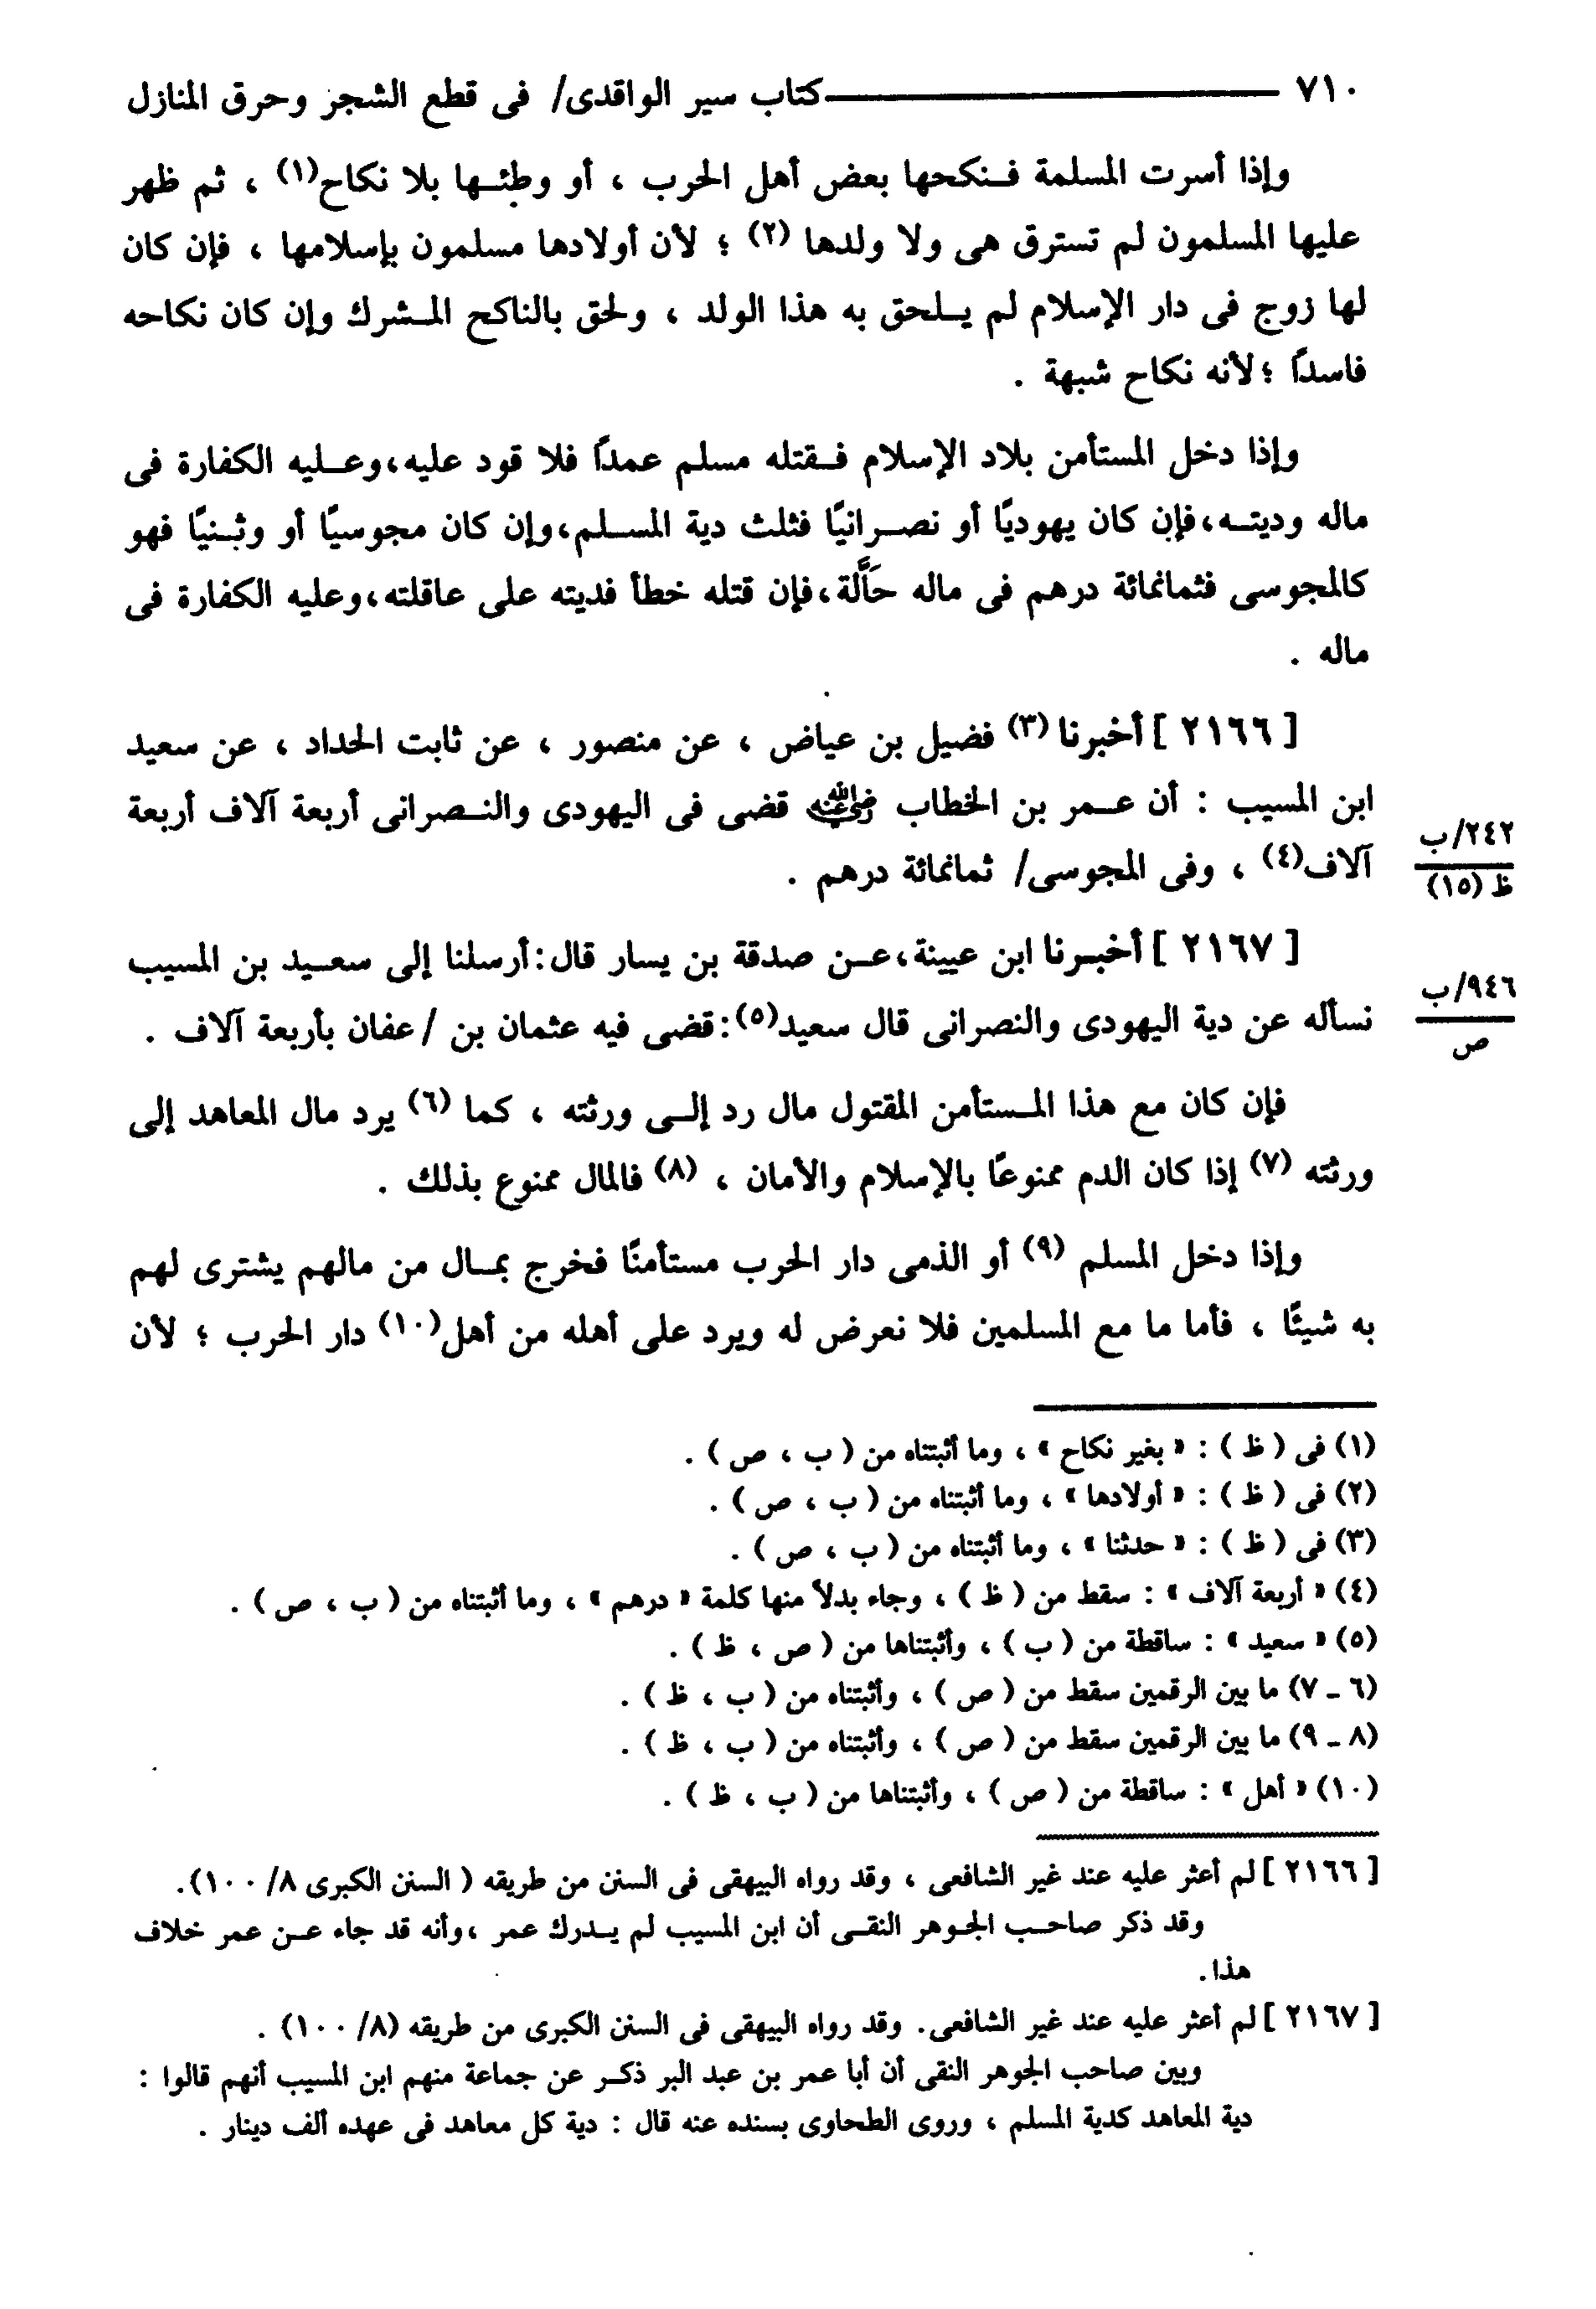 ٧١٠ ——— كتاب سير الواقدى/ فى قطع الشجر وحرق المنازل
وإذا أسرت المسلمة فنكحها بعض أهل الحرب ، أو وطئها بلا نكاح(١) ، ثم ظهر
عليها المسلمون لم تسترق هى ولا ولدها (٢) ؛ لأن أولادها مسلمون بإسلامها ، فإن كان
لها زوج فى دار الإسلام لم يلحق به هذا الولد ، ولحق بالناكح المشرك وإن كان نكاحه
فاسدًا ؛لأنه نكاح شبهة .
وإذا دخل المستأمن بلاد الإسلام فقتله مسلم عمدًا فلا قود عليه،وعليه الكفارة فى
ماله وديته،فإن كان يهوديًا أو نصرانيًا فثلث دية المسلم،وإن كان مجوسيًا أو وثنيًا فهو
كالمجوسى فثمانمائة درهم فى ماله حَالَّة،فإن قتله خطأ فديته على عاقلته،وعليه الكفارة فى
ماله .
[ ٢١٦٦ ] أخبرنا (٣) فضيل بن عياض ، عن منصور ، عن ثابت الحداد ، عن سعيد
ابن المسيب : أن عمر بن الخطاب رضي الله عنه قضى فى اليهودى والنصرانى أربعة آلاف أربعة
آلاف(٤) ، وفى المجوسى/ ثمانمائة درهم .
٢٤٢/ب
ظ (١٥)
[ ٢١٦٧ ] أخبرنا ابن عيينة،عن صدقة بن يسار قال:أرسلنا إلى سعيد بن المسيب
نسأله عن دية اليهودى والنصرانى قال سعيد(٥):قضى فيه عثمان بن /عفان بأربعة آلاف .
٩٤٦/ب
ص
فإن كان مع هذا المستأمن المقتول مال رد إلى ورثته ، كما (٦) يرد مال المعاهد إلى
ورثته (٧) إذا كان الدم ممنوعًا بالإسلام والأمان ، (٨) فالمال ممنوع بذلك .
وإذا دخل المسلم (٩) أو الذمى دار الحرب مستأمنًا فخرج بمال من مالهم يشترى لهم
به شيئًا ، فأما ما مع المسلمين فلا نعرض له ويرد على أهله من أهل(١٠) دار الحرب ؛ لأن
(١) فى ( ظ ) : « بغير نكاح » ، وما أثبتناه من ( ب ، ص ) .
(٢) فى ( ظ ) : « أولادها » ، وما أثبتناه من ( ب ، ص ) .
(٣) فى ( ظ ) : « حدثنا » ، وما أثبتناه من ( ب ، ص ) .
(٤) « أربعة آلاف » : سقط من ( ظ ) ، وجاء بدلاً منها كلمة « درهم » ، وما أثبتناه من ( ب ، ص ) .
(٥) « سعيد » : ساقطة من ( ب ) ، وأثبتناها من ( ص ، ظ ) .
(٦ ـ ٧) ما بين الرقمين سقط من ( ص ) ، وأثبتناه من ( ب ، ظ ) .
(٨ ـ ٩) ما بين الرقمين سقط من ( ص ) ، وأثبتناه من ( ب ، ظ ) .
(١٠) « أهل » : ساقطة من ( ص ) ، وأثبتناها من ( ب ، ظ ) .
[ ٢١٦٦ ] لم أعثر عليه عند غير الشافعى ، وقد رواه البيهقى فى السنن من طريقه ( السنن الكبرى ٨/ ١٠٠).
وقد ذكر صاحب الجوهر النقى أن ابن المسيب لم يدرك عمر ،وأنه قد جاء عن عمر خلاف
هذا.
[ ٢١٦٧ ] لم أعثر عليه عند غير الشافعى. وقد رواه البيهقى فى السنن الكبرى من طريقه (٨/ ١٠٠) .
وبين صاحب الجوهر النقى أن أبا عمر بن عبد البر ذكر عن جماعة منهم ابن المسيب أنهم قالوا :
دية المعاهد كدية المسلم ، وروى الطحاوى بسنده عنه قال : دية كل معاهد فى عهده ألف دينار .